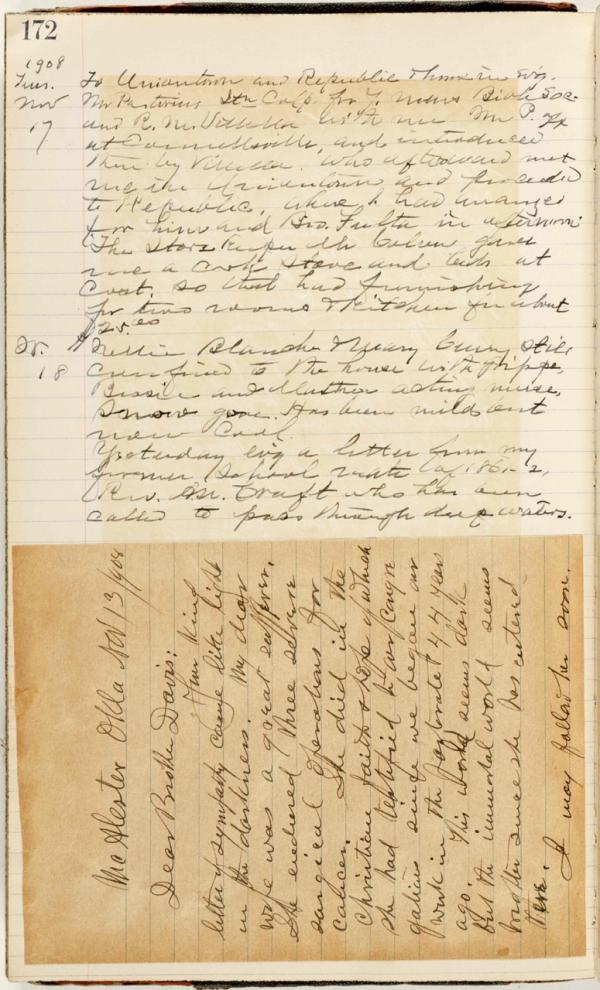 172
1908
Tues. To Uniontown and Republic & home in ev'g.
Nov Mr. Pastorius Stn Colp. for Y. Mens Bible Soc.
17 and R. M. Villella with me Mr P. off
at Connellsville, and introduced
there by Villella. Was afterward met
me in Uniontown and proceeded
to Republic, where I had arranged
for him and Bro. Fulta in afternoon.
The Store Keeper Mr Cohen gave
me a cook stove and beds at
Cost, so that had furnishing
for two rooms & Kitchen for about
$25.00
W. Nellie Blanche & Mary Curry still
18 confined to the house with grippe,
Bessie and Mother acting nurse,
Snow gone. Has been mild but
now Cool.
Yesterday ev'g a letter from my
former School mate (of 1861-2,
(Rev. E.M. Craft who has been
called to pass through deep waters.
McAlester Okla Nov 13/908
Dear Brother Davis:
Your kind
letter of sympathy came like light
in the darkness. My dear
wife was a great sufferer.
She endured three severe
surgical operations for
cancer. She died in the
Christian faith & hope of which
she had testified in our congre
gations since we began our
work in the pastorate 44 years
ago. This world seems dark
but the immortal world seems
brighter since she has entered
there.
I may follow her soon.